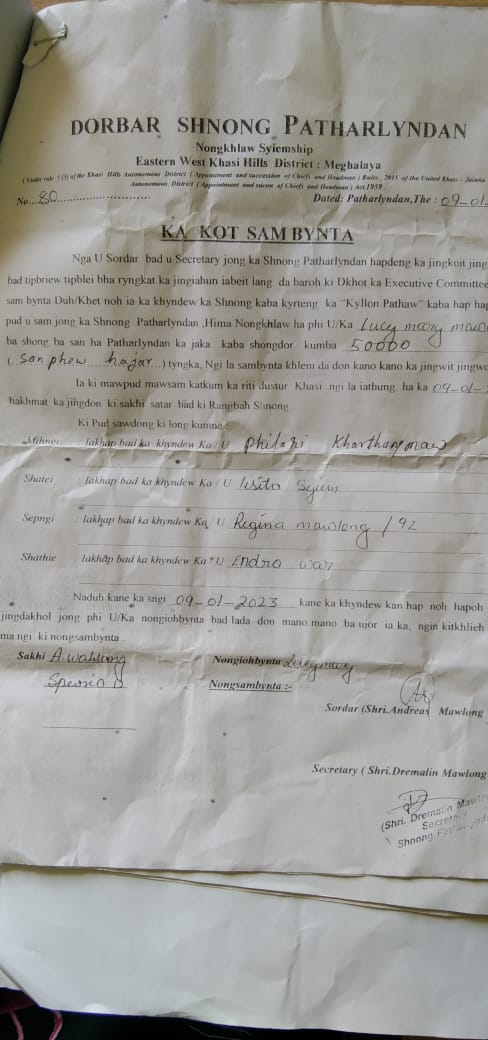 DORBAR SHNONG PATHARLYNDAN
Nongkhlaw Syiemship
Eastern West Khasi Hills District : Meghalaya
( Under rule 3 (5) of the Khasi Hills Autonomous District ( Appointment and succession of Chiefs and Headman ) Rules , 2015 of the United Khasi – Jaintia
Autonomous District ( Appointment and sucon of Chiefs and Headman ) Act 1959
No... 80 Dated: Patharlyndan,The : 09-01-
KA KOT SAM BYNTA
Nga U Sordar bad u Secretary jong ka Shnong Patharlyndan hapdeng ka jingkoit jing
bad tipbriew tipblei bha ryngkat ka jingiahun iabeit lang da baroh ki Dkhot ka Executive Committee
sam bynta Duh/Khet noh ia ka khyndew ka Shnong kaba kyrteng ka "Kyllon Pathaw" kaba hap hap
pud u sam jong ka Shnong Patharlyndan ,Hima Nongkhlaw ha phi U/Ka Lucy mary maw
ba shong ba san ha Patharlyndan ka jaka kaba shongdor kumba 50000
(..San phew hajar...) tyngka, Ngi la sambynta khlem da don kano kano ka jingwit jingwo
Ia ki mawpud mawsam katkum ka riti dustur Khasi ngi la iathung ha ka 09-01-
hakhmat ka jingdon ki sakhi satar bad ki Rangbah Shnong
Ki Pud sawdong ki long kumne :
Mihngi : lakhap bad ka khyndew Ka / U Philari Kharthangmaw
Shatei lakhap bad ka khyndew Ka / U Syiem
Sepngi : lakhap bad ka khyndew Ka / U Regina mawlong / 92
Shathie lakhap bad ka khyndew Ka / U Endro war
Naduh kane ka sngi 09-01-2023 kane ka khyndew kan hap noh hapoh
jingdakhol jong phi U/Ka nongiohbynta bad lada don mano mano ba ujor ia ka, ngin kitkhlieh
ma ngi ki nongsambynta .
Sakhi A. wahlang Nongiohbynta Lucy mary
Nongsambynta :-
Sordar (Shri.Andreas Mawlong
Secretary ( Shri.Dremalin Mawlong
(Shri. Dremalin Mawlo
Secretary
Shnong Patharlynd